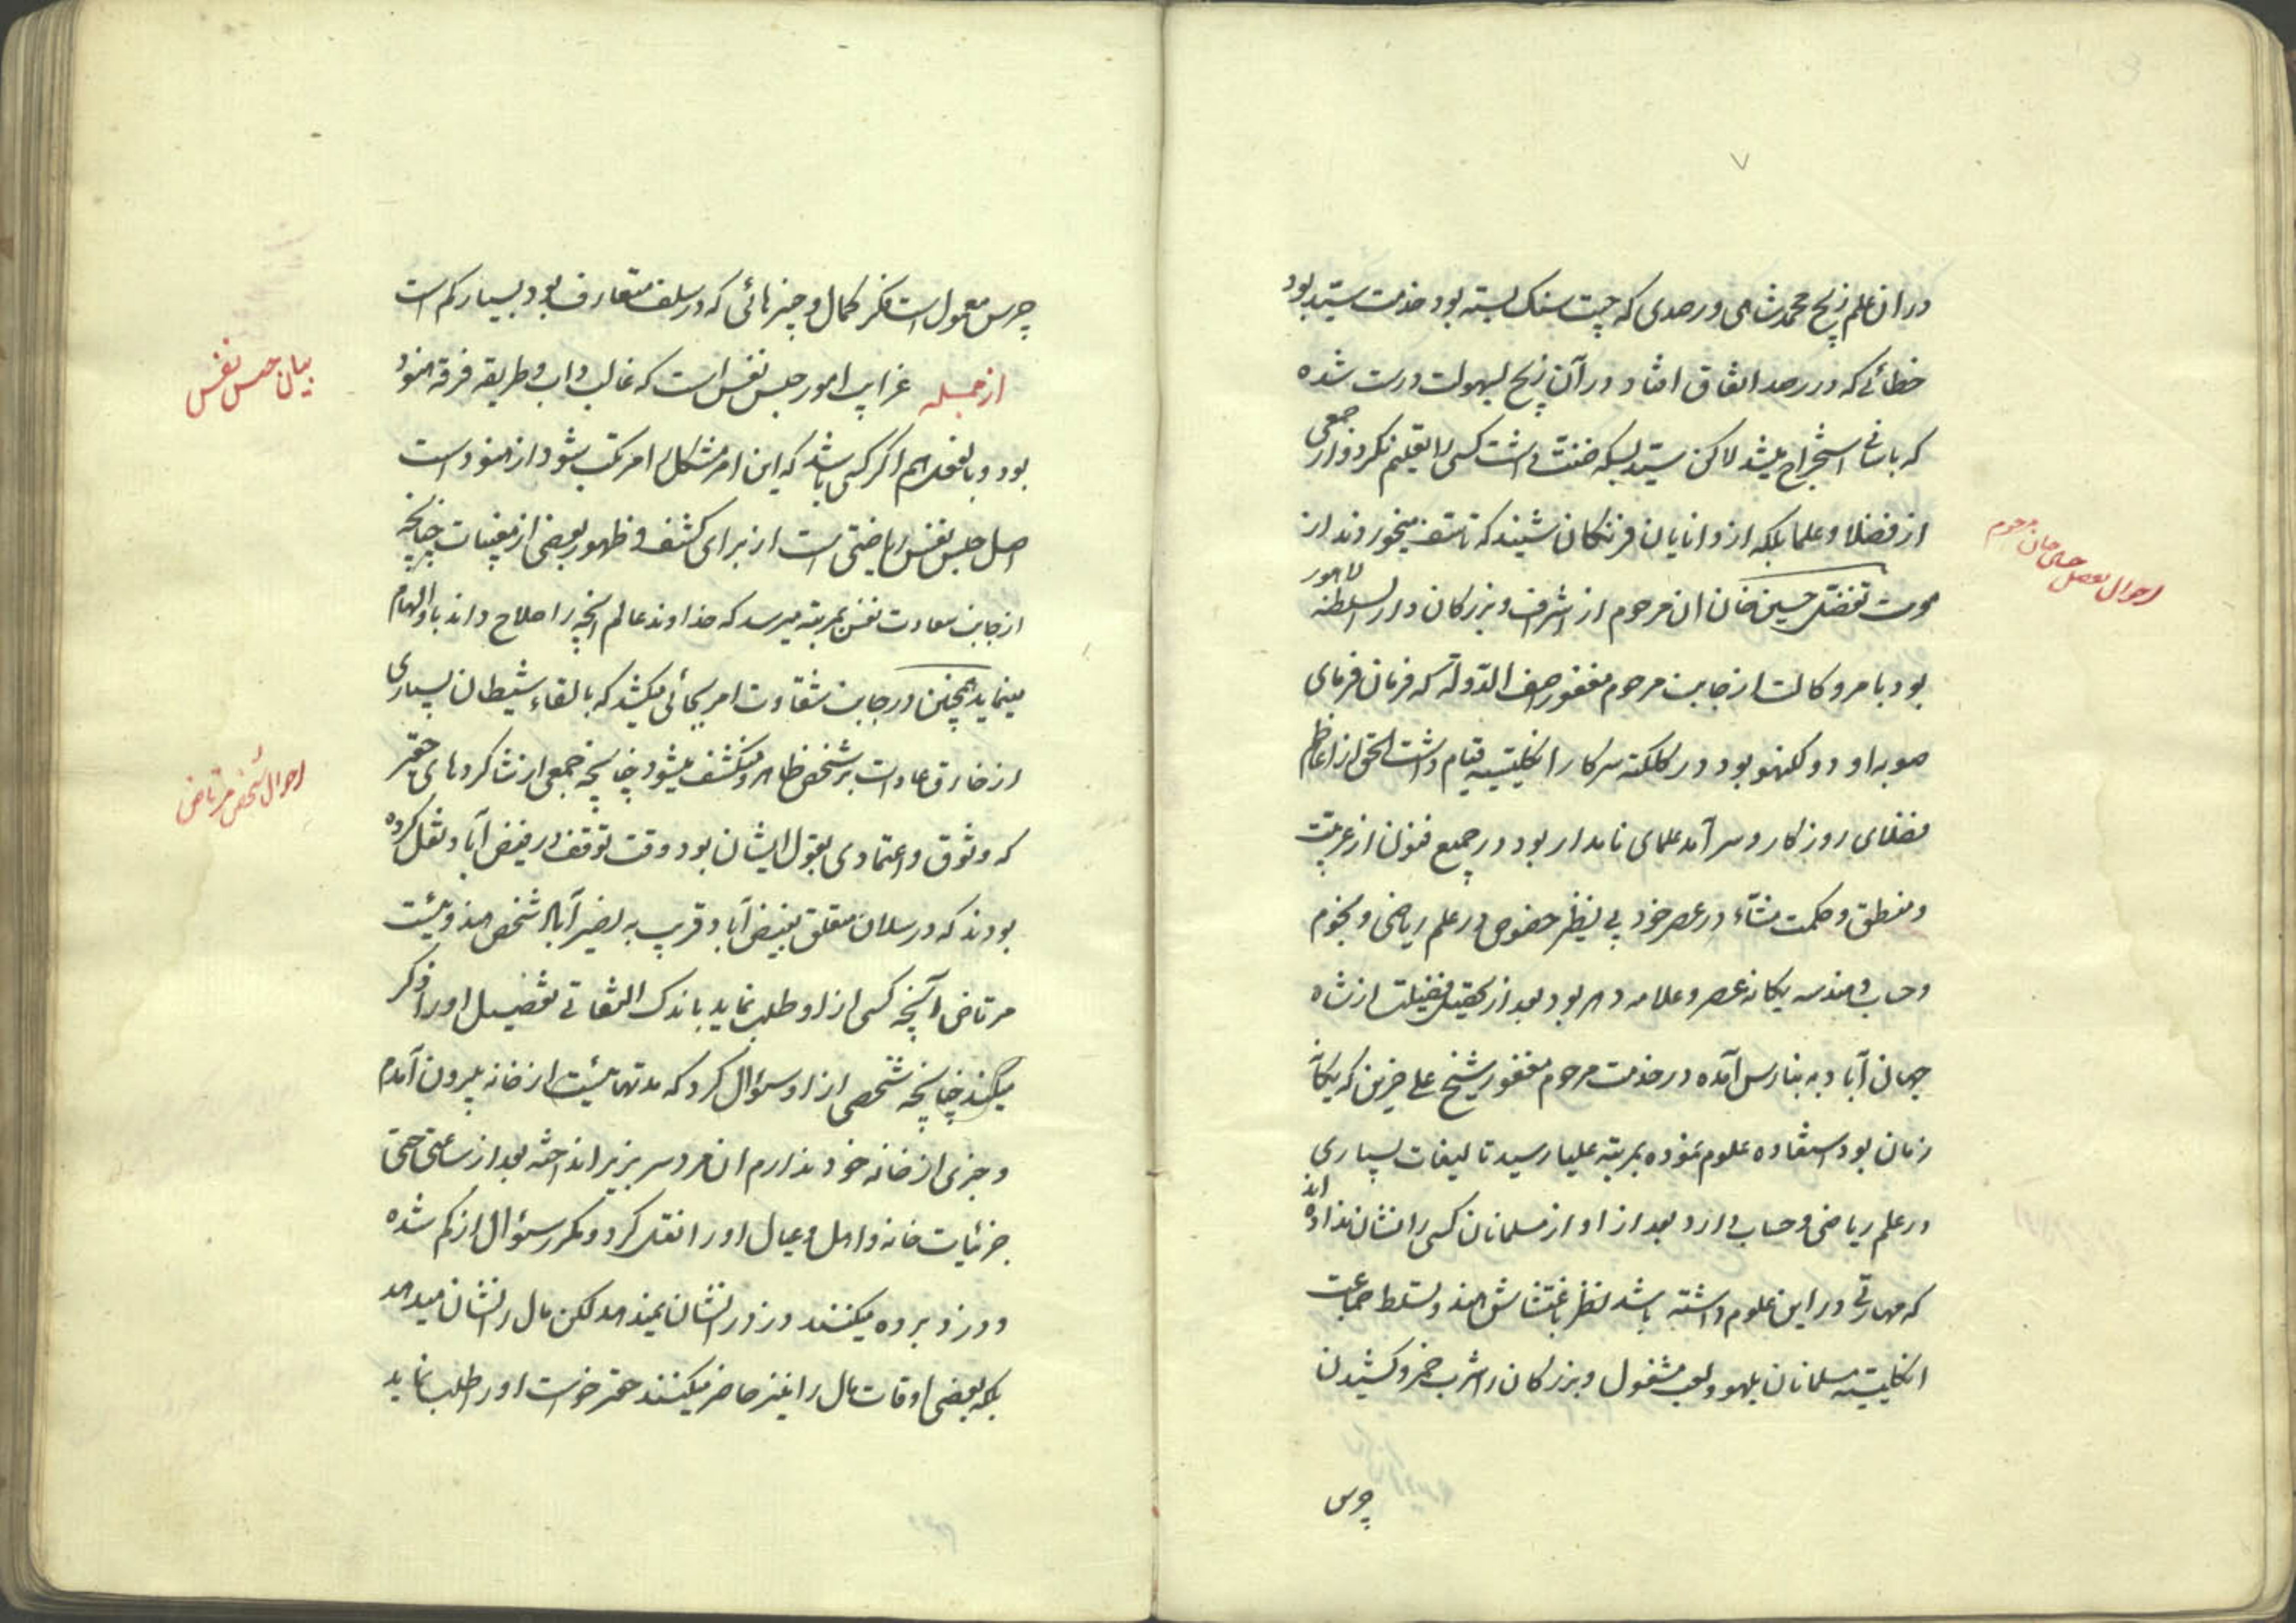 در ان علم زیج محمد شاهی و رصدی که چیت سنک بسته بود خدمت سید بود
خطائے که در رصد اتفاق افتاد در آن زیج بسهولت درست شده
که باسانی استخراج میشد لاکن سید بسکه ضنت داشت کسی را تعلیم نکرد و از جمعی
از فضلا و علما بلکه از دانایان فرنگان شنیدند که تاسف میخوردند از
موت تفضل حسین خان ان مرحوم از اشراف و بزرکان دار السلطنه لاهور
بود بامر وکالت از جانب مرحوم مغفور اصف الدوله که فرمان فرمای
صوبه اود و لکنهو بود در کلکته سرکار انکلیسیه قیام داشت الحق از اعاظم
فضلای روزکار و سرآمد علمای نامدار بود در جمیع فنون از عربیت
و منطق و حکمت مشاء در عصر خود بی نظیر خصوص در علم ریاضی و نجوم
و حساب و هندسه یکانه عصر و علامه دهر بود بعد از تحصیل فضیلت از شاه
جهان آباد به بنارس آمده در خدمت مرحوم مغفور شیخ علی حزین که یکانه
زمان بود استفاده علوم نموده بمرتبه علیا رسید تالیفات بسیاری
در علم ریاضی و حساب دارد بعد از او از مسلمانان کسی را نشان نداده اند
که مهارتی در این علوم داشته باشد نظر باغتشاش هند و تسلط جماعت
انکلیسیه مسلمانان بلهو و لعب مشغول و بزرکان را شرب خمر و کشیدن
چرس
احوال تفضل حسین خان مرحوم
چرس معمول است فکر کمال و چیزهائی که در سلف متعارف بود بسیار کم است
ازجمله غرایب امور حبس نفس است که غالب داب و طریقه فرقه هنود
بود و بالفعل هم اکر کسی باشد که این امر مشکل را مرتکب شود از هنود است
اصل حبس نفس ریاضتی است از برای کشف و ظهور بعضی از مغیبات چنانچه
از جانب سعادت نفس بمرتبه میرسد که خداوند عالم آنچه را صلاح داند باو الهام
مینماید همچنین در جانب شقاوت امر بجائی میکشد که بالقاء شیطان بسیاری
از خارق عادات بر شخص ظاهر و منکشف میشود چنانچه جمعی از شاکردهای حقیر
که وثوق و اعتمادی بقول ایشان بود وقت توقف در فیض آباد نقل کرده
بودند که در سلان متعلق بفیض آباد قریب به نصیر آباد شخص هندوئیست
مرتاض آنچه کسی از او طلب نماید باندک التفاتی تفصیل او را ذکر
میکند چنانچه شخصی از او سؤال کرد که مدتهائیست از خانه بیرون آمدم
و خبری از خانه خود ندارم ان مرد سر بزیر انداخته بعد از ساعتی حتی
جزئیات خانه و اهل و عیال او را نقل کرد و مکرر سؤال از کم شده
و دزد برده میکنند دزد را نشان نمیدهد لکن مال را نشان میدهد
بلکه بعضی اوقات مال را نیز حاضر میکنند حقیر خواست او را طلب نماید
بیان حبس نفس
احوال شخص مرتاض